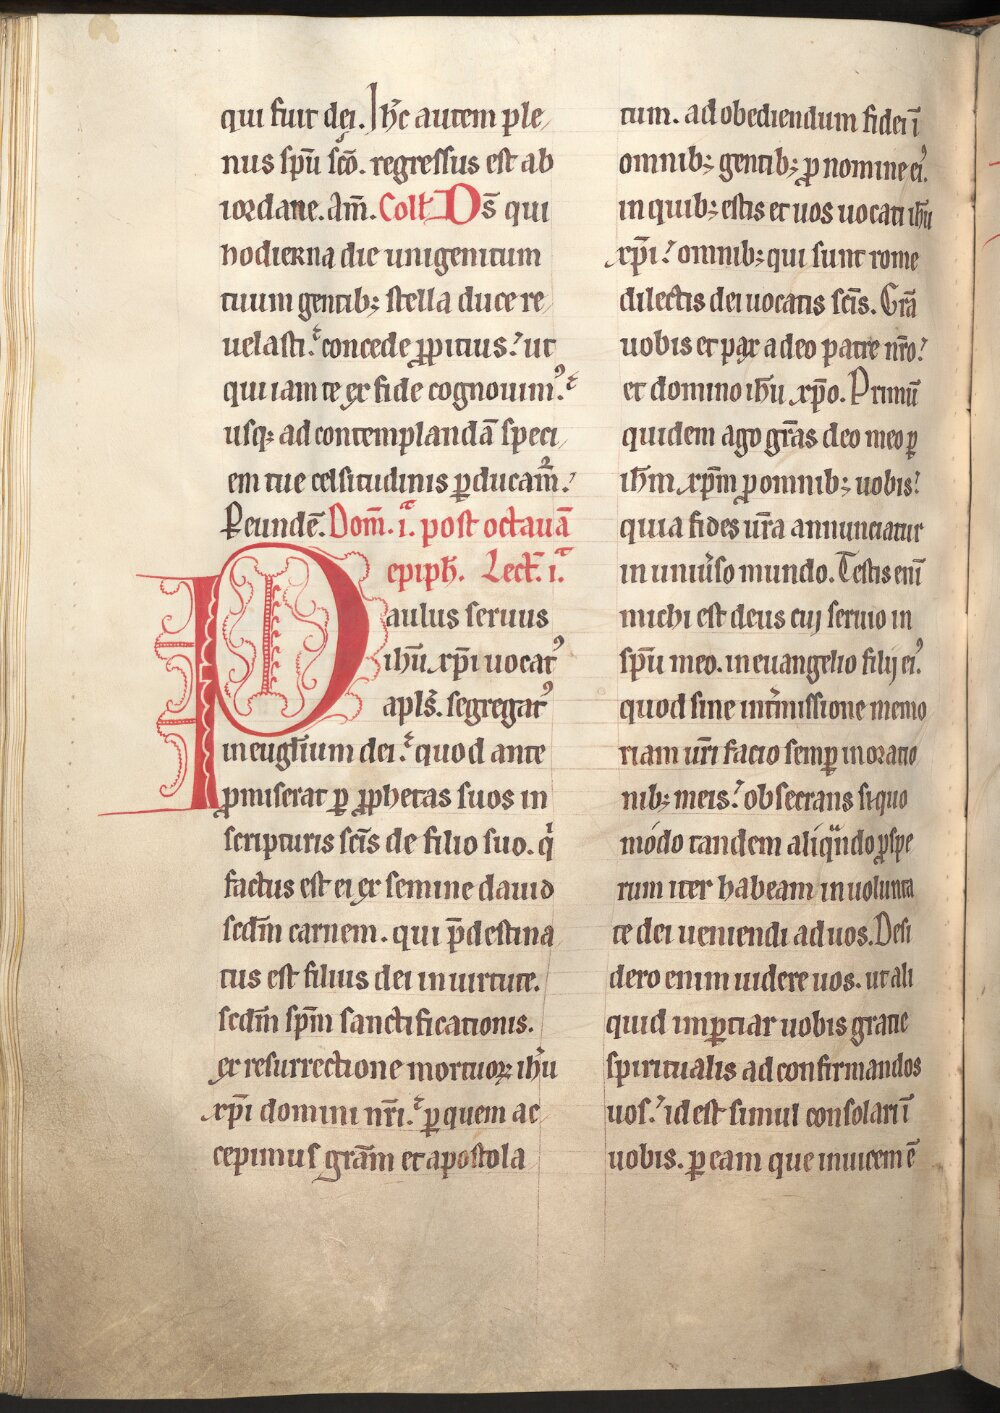 qui fuit dei. Ih̄c autem ple/
nus sp̄u sc̄o. regressus est ab
iordane. Am̄. Coll̄ D̄s qui
hodierna die unigenitum
tuum gentib; stella duce re/
uelasti. concede ꝓpitius. ut
qui iam te ex fide cognouim᾿.
usq; ad contemplandā speci/
em tue celsitudinis ꝑducam̄.
P eundē. Dom̄. i.ᵃ post octauā
epiph̄. Lect̄. i.ᵃ
Paulus seruus
ih̄u xp̄i uocat᾿
apl̄s. segregat᾿
in eugl̄ium dei. quod ante
ꝓmiserat ꝑ ꝓphetas suos in
scripturis sc̄is de filio suo. qⁱ
factus est ei ex semine dauid
scd̄m carnem. qui p̄destina
tus est filius dei in uirtute.
scd̄m sp̄m sanctificationis.
ex resurrectione mortuoꝝ ih̄u
xp̄i domini nr̄i. ꝑ quem ac
cepimus grām et apostola
tum. ad obediendum fidei ī
omnib; gentib; ꝓ nomine ei᾿.
in quib; estis et uos uocati ih̄u
xp̄i. omnib; qui sunt rome
dilectis dei uocatis sc̄is. Grā
uobis et pax a deo patre nr̄o.
et domino ih̄u xp̄o. Primū
quidem ago grās deo meo ꝑ
ih̄m xp̄m ꝓ omnib; uobis.
quia fides ur̄a annunciatur
in uniuso mundo. Testis enī
michi est deus cuj seruio in
sp̄u meo. in euangelio filij ei᾿.
quod sine int̄missione memo
riam ur̄i facio semꝑ in oratio
nib; meis. obsecrans si quo
modo tandem aliqn̄do ꝓspe
rum iter habeam in uolunta
te dei ueniendi ad uos. Desi
dero enim uidere uos. ut ali
quid imꝑtiar uobis gratie
spiritualis ad confirmandos
uos. id est simul consolari ī
uobis. ꝑ eam que inuicem ē